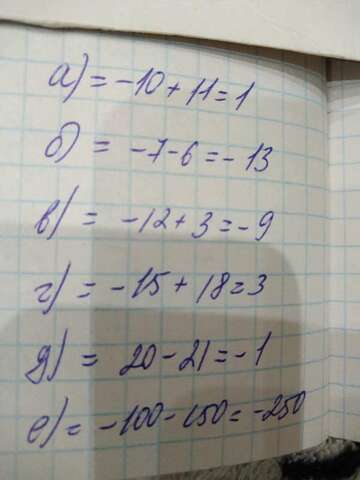 а) = -10 + 11 = 1
б) = -7 - 6 = - 13
в) = -12 + 3 = -9
г) = -15 + 18 = 3
д) = 20 - 21 = -1
е) = -100 - 150 = -250